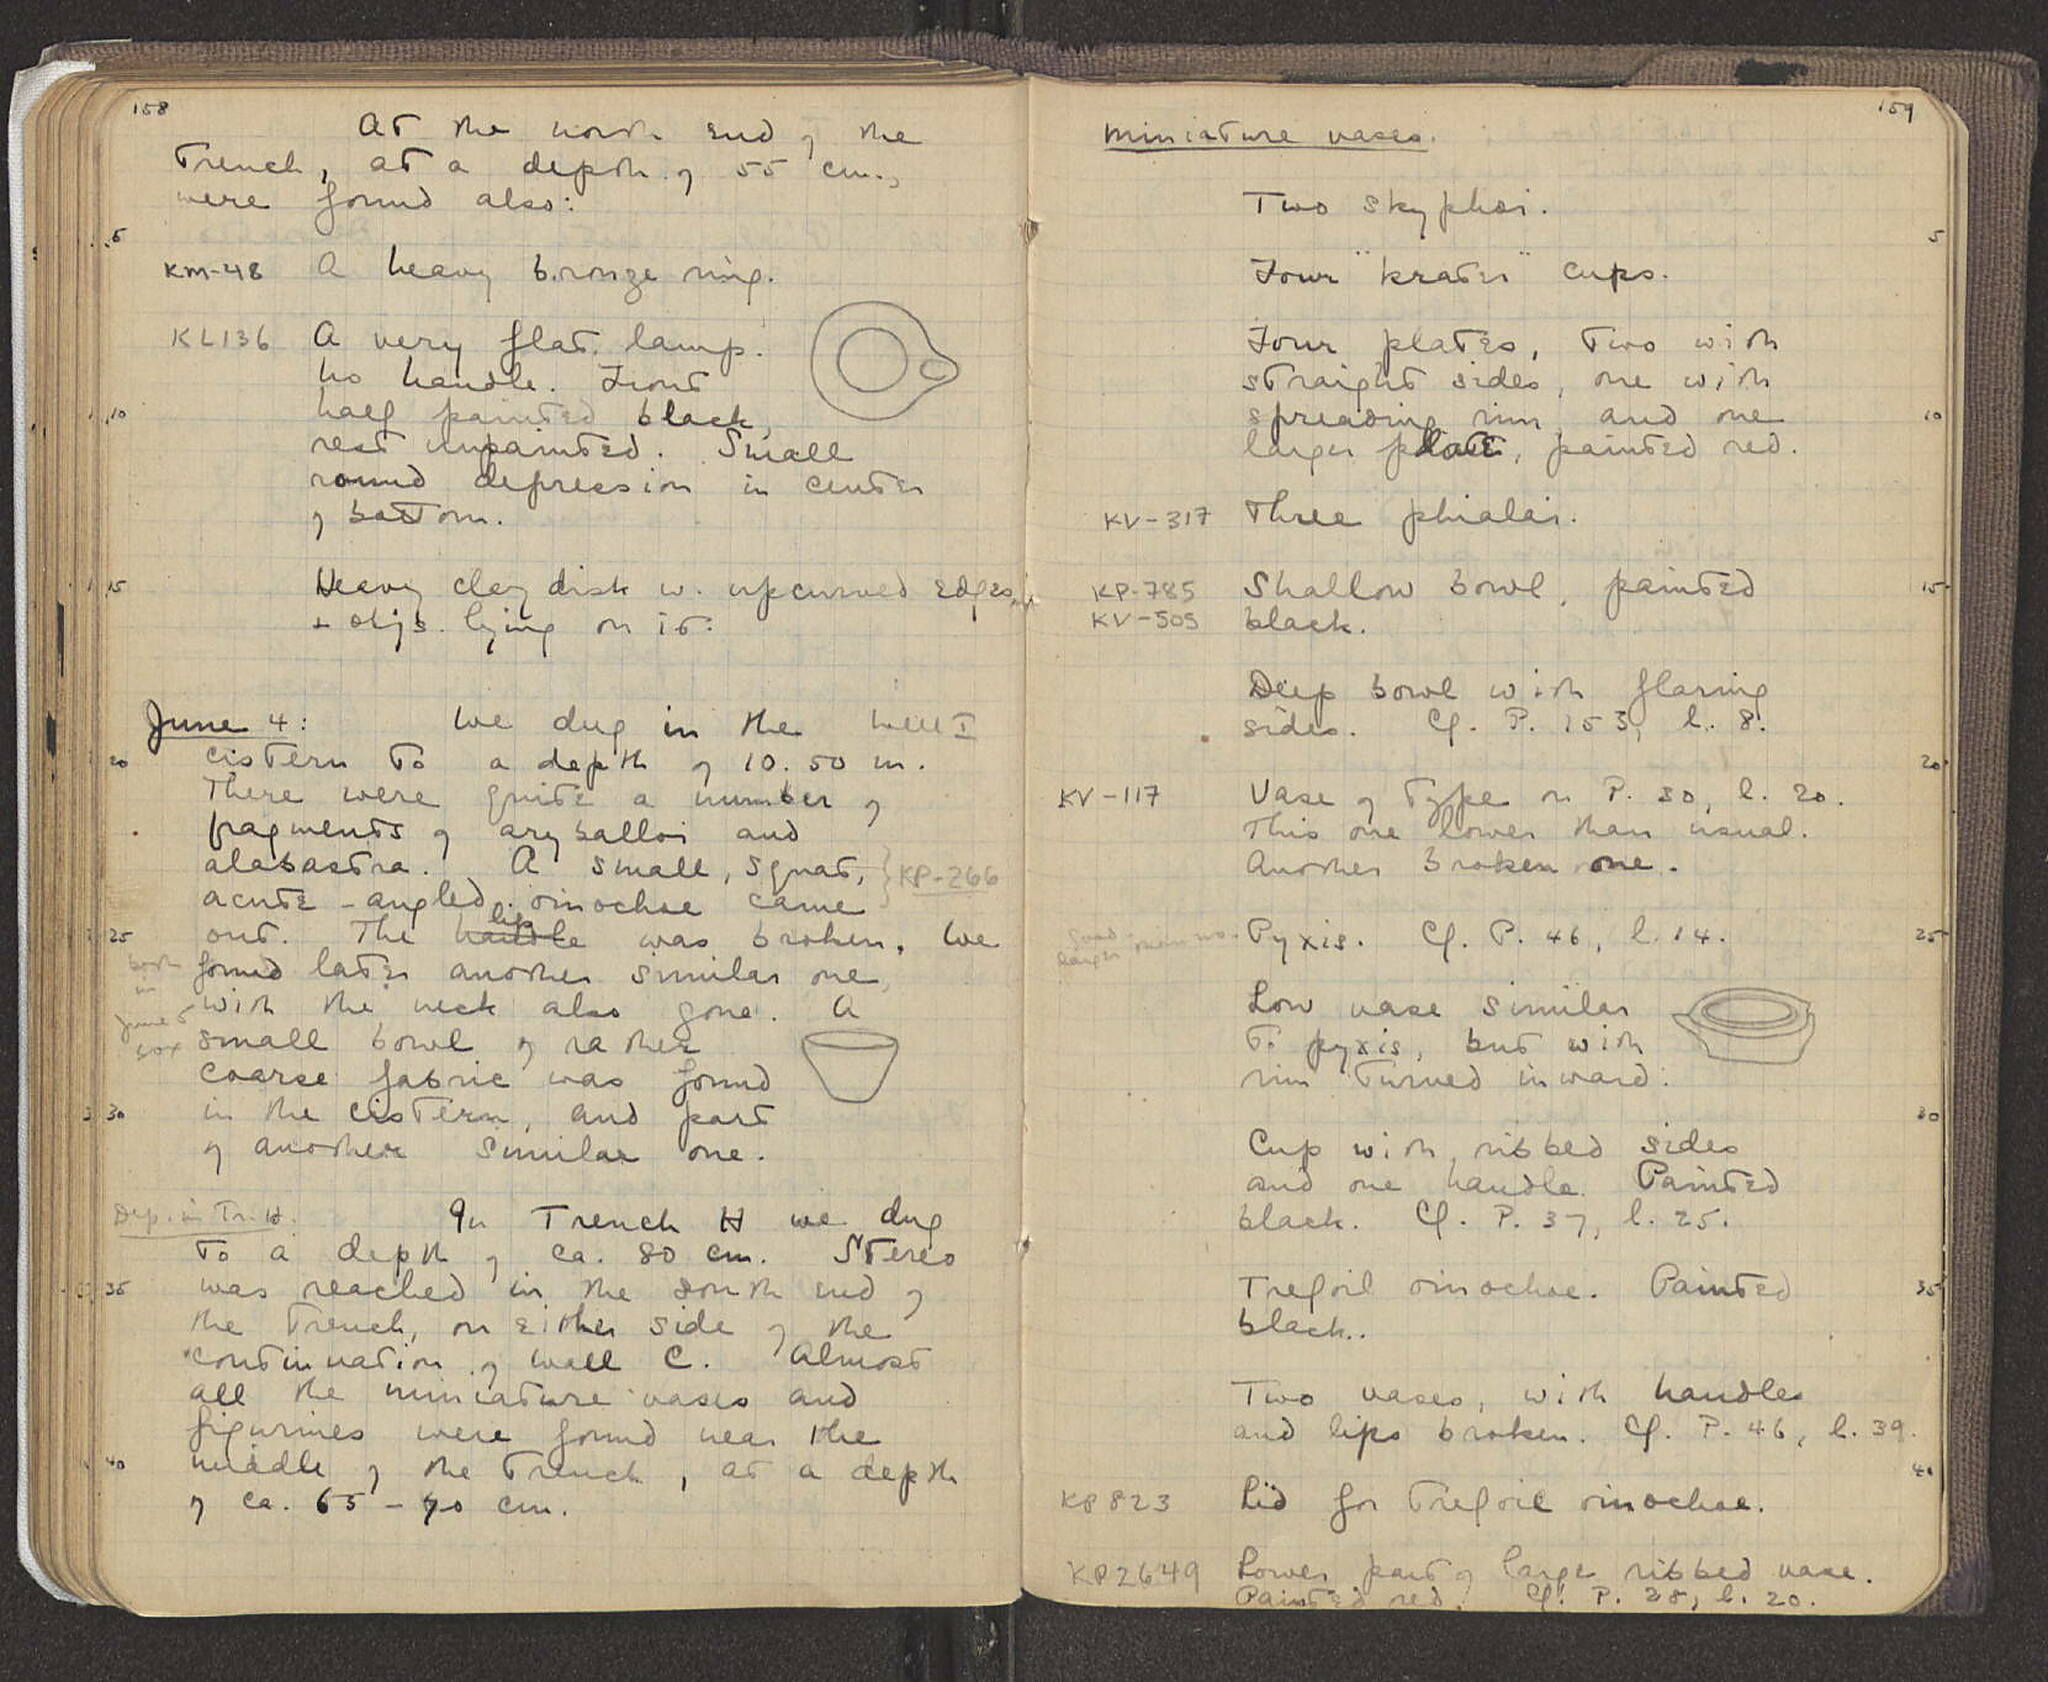 158
At the north end of the
trench, at a depth of 55 cm.,
were found also:
5
KM-48 A heavy bronze ring.
KL136 A very flat lamp.
No handle. Front
10 half painted black,
rest unpainted. Small
round depression in center
of bottom.
15 Heavy clay disk w. upcurved edges,
+ objs. lying on it.
June 4: We dug in the Well I
20 cistern to a depth of 10.50 m.
There were quite a number of
fragments of aryballoi and
alabastra. A small, squat, } KP-266
acute-angled oinochoe came
lip
25 out. The handle was broken. We
found later another similar one,
with the neck also gone. A
both
in
June 5
box
small bowl of rather
coarse fabric was found
30 in the cistern, and part
of another similar one.
Dep. in Tr. H. In Trench H we dug
to a depth of ca. 80 cm. Stereo
35 was reached in the south end of
the trench, on either side of the
continuation of wall C. Almost
all the miniature vases and
figurines were found near the
40 middle of the trench, at a depth
of ca. 65-70 cm.
159
Miniature vases.
Two skyphoi.
5
Four "krater" cups.
Four plates, two with
straight sides, one with
spreading rim, and one 10
larger plate, painted red.
KV-317 Three phialai.
KP-785 Shallow bowl, painted 15
KV-505 black.
Deep bowl with flaring
sides. Cf. P. 153, l. 8.
20
KV-117 Vase of type on P. 30, l. 20.
This one lower than usual.
Another broken one.
Pyxis. Cf. P. 46, l. 14. 25
larger
Low vase similar
to pyxis, but with
rim turned inward.
30
Cup with ribbed sides
and one handle. Painted
black. Cf. P. 37, l. 25.
Trefoil oinochoe. Painted 35
black.
Two vases, with handles
and lips broken. Cf. P. 46, l. 39.
40
KP823 Lid for trefoil oinochoe.
KP2649 Lower part of large ribbed vase.
Painted red. Cf. P. 28, l. 20.